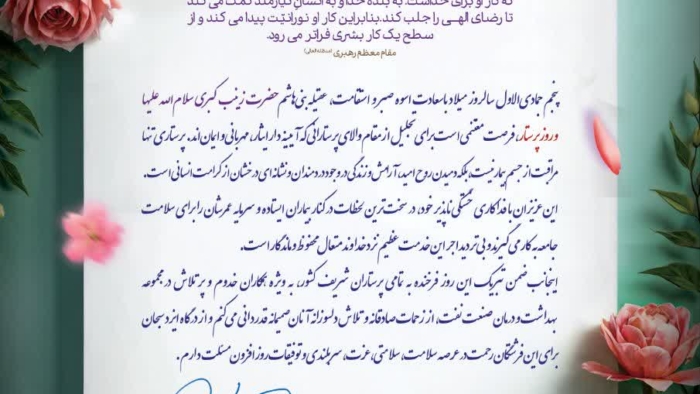 که کار او برای خداست. به بنده خدا و به انسانِ نیازمند کمک می کند
تا رضای الهی را جلب کند. بنابراین کار او نورانیّت پیدا می کند و از
سطح یک کار بشری فراتر می رود.
مقام معظم رهبری (مدظله العالی)
پنجم جمادی الاول سالروز میلاد باسعادت اسوه صبر و استقامت، عقیله بنی هاشم حضرت زینب کبری سلام الله علیها
و روز پرستار، فرصت مغتنمی است برای تجلیل از مقام والای پرستارانی که آیینه دار ایثار، مهربانی و ایمان اند. پرستاری تنها
مراقبت از جسم بیمار نیست، بلکه دمیدن روح امید، آرامش و زندگی در وجود دردمندان و نشانه ای درخشان از کرامت انسانی است.
این عزیزان با فداکاری خستگی ناپذیر خود، در سخت ترین لحظات در کنار بیماران ایستاده و سرمایه عمرشان را برای سلامت
جامعه به کار می گیرند و بی تردید اجر این خدمت عظیم نزد خداوند متعال محفوظ و ماندگار است.
اینجانب ضمن تبریک این روز فرخنده به تمامی پرستاران شریف کشور، به ویژه همکاران خدوم و پرتلاش در مجموعه
بهداشت و درمان صنعت نفت، از زحمات صادقانه و تلاش دلسوزانه آنان صمیمانه قدردانی می کنم و از درگاه ایزد سبحان
برای این فرشتگان رحمت در عرصه سلامت، سلامتی، عزت، سربلندی و توفیقات روزافزون مسئلت دارم.